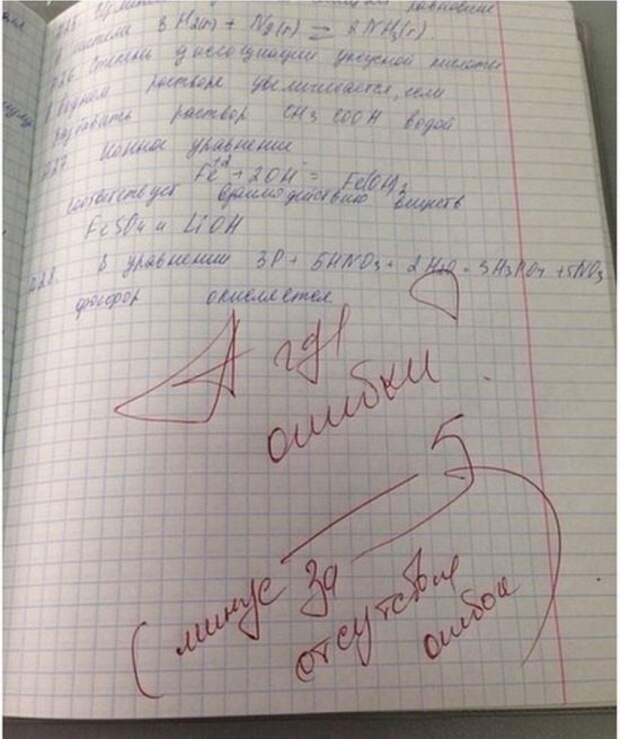 равновесие
в системе 3H₂(г) + N₂(г) = 2NH₃(г)
Q26 Степень диссоциации уксусной кислоты
в водном растворе увеличивается, если
разбавить раствор CH₃COOH водой
Q27 Ионное уравнение
Fe⁺² + 2OH⁻ = Fe(OH)₂
соответствует взаимодействию веществ
FeSO₄ и LiOH
Q28. В уравнении 3P + 5HNO₃ + 2H₂O = 3H₃PO₄ + 5NO
фосфор окисляется
А где
ошибки
5-
(минус за
отсутствие
ошибок)